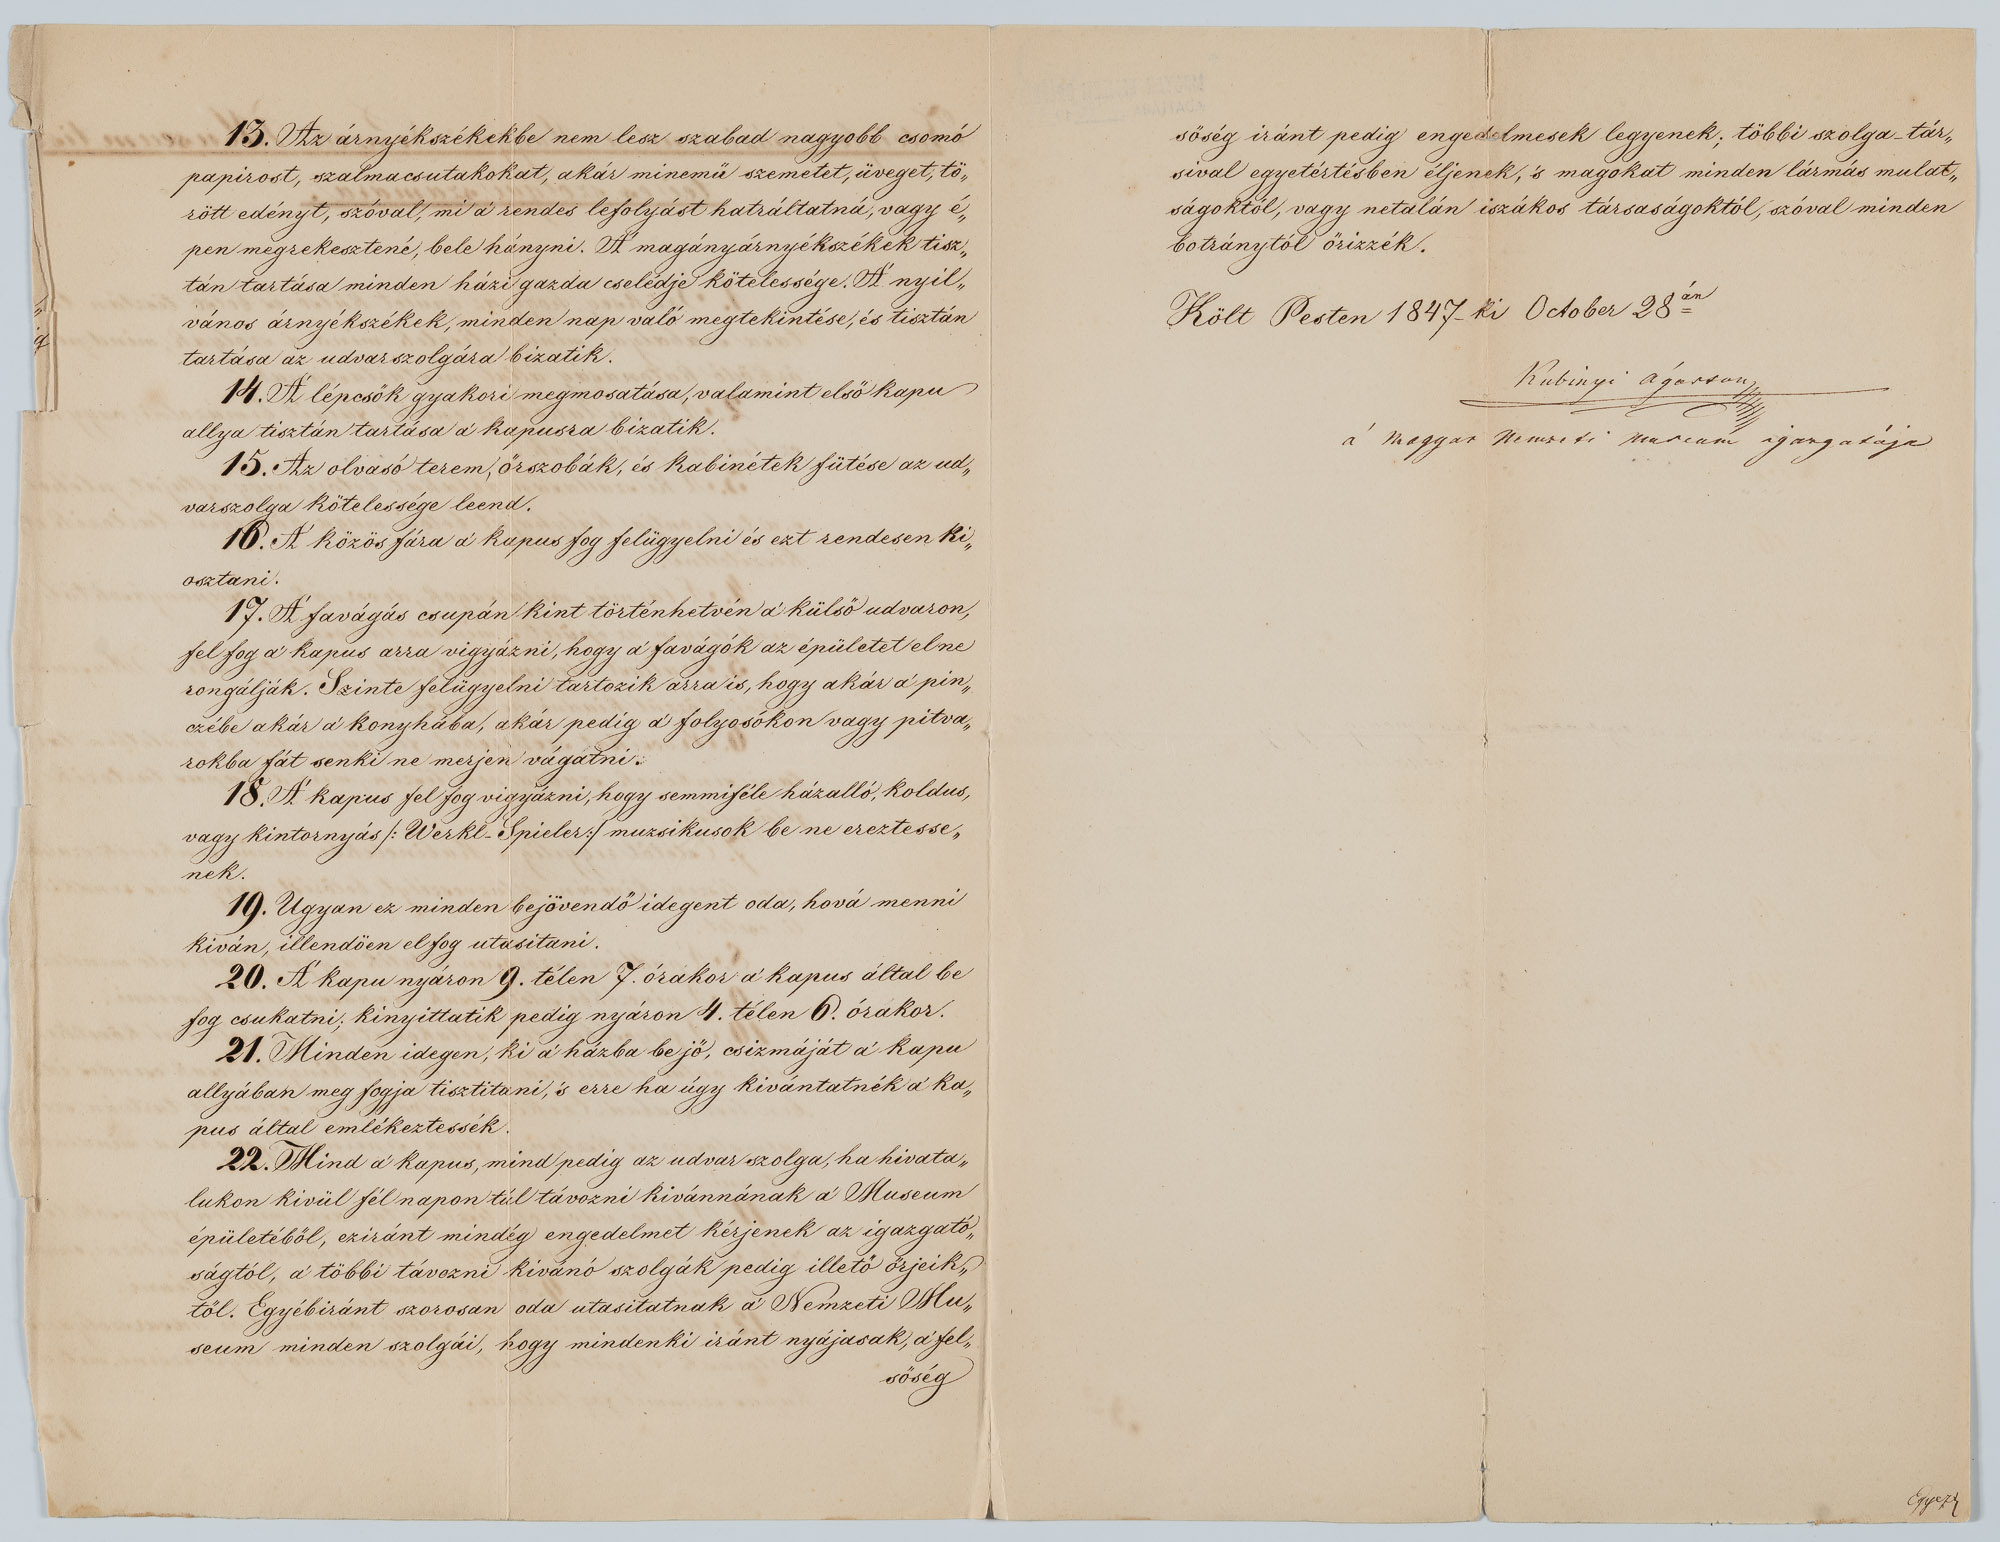 13. Az árnyékszékekbe nem lesz szabad nagyobb csomó
papirost, szalmacsutakokat, akár minemü szemetet, üveget, tö„
rött edényt, szóval, mi a' rendes lefolyást hatráltatná, vagy é„
pen megrekesztené, bele hányni. A' magányárnyékszékek tisz„
tán tartása minden házi gazda cselédje kötelessége. A' nyil„
vános árnyékszékek, minden nap való megtekintése, és tisztán
tartása az udvarszolgára bizatik.
14. A' lépcsők gyakori megmosatása, valamint első kapu
allya tisztán tartása a' kapusra bizatik.
15. Az olvasó terem, őrszobák, és kabinétek fütése az ud„
varszolga kötelessége leend.
16. A' közös fára a' kapus fog felügyelni és ezt rendesen ki„
osztani.
17. A' favágás csupán kint történhetvén a' külső udvaron,
fel fog a' kapus arra vigyázni, hogy a' favágók az épületet el ne
rongálják. Szinte felügyelni tartozik arra is, hogy akár a' pin„
czébe akár a' konyhába, akár pedig a' folyosókon vagy pitva„
rokba fát senki ne merjen vágatni.
18. A' kapus fel fog vigyázni, hogy semmiféle házalló, koldus,
vagy kintornyás /: Werkl-Spieler :/ muzsikusok be ne ereztesse„
nek.
19. Ugyan ez minden bejövendő idegent oda, hová menni
kiván, illendően el fog utasitani.
20. A' kapu nyáron 9. télen 7. órakor a' kapus által be
fog csukatni; kinyittatik pedig nyáron 4. télen 6. órakor.
21. Minden idegen, ki a' házba be jő, csizmáját a' kapu
allyában meg fogja tisztitani, 's erre ha úgy kivántatnék a' ka„
pus által emlékeztessék.
22. Mind a' kapus, mind pedig az udvarszolga, ha hivata„
lukon kivül fél napon túl távozni kivánnának a' Museum
épületéből, eziránt mindég engedelmet kérjenek az igazgató„
ságtól, a' többi távozni kivánó szolgák pedig illető őrjeik„
től. Egyébiránt szorosan oda utasitatnak a' Nemzeti Mu„
seum minden szolgái, hogy mindenki iránt nyájasak, a' fel„
sőség
sőség iránt pedig engedelmesek legyenek; többi szolga-tár„
sival egyetértésben éljenek, 's magokat minden lármás mulat„
ságoktól, vagy netalán iszákos társaságoktól, szóval minden
botránytól őrizzék.
Költ Pesten 1847-ki October 28án
Kubinyi Ágoston
a' magyar nemzeti museum igazgatója